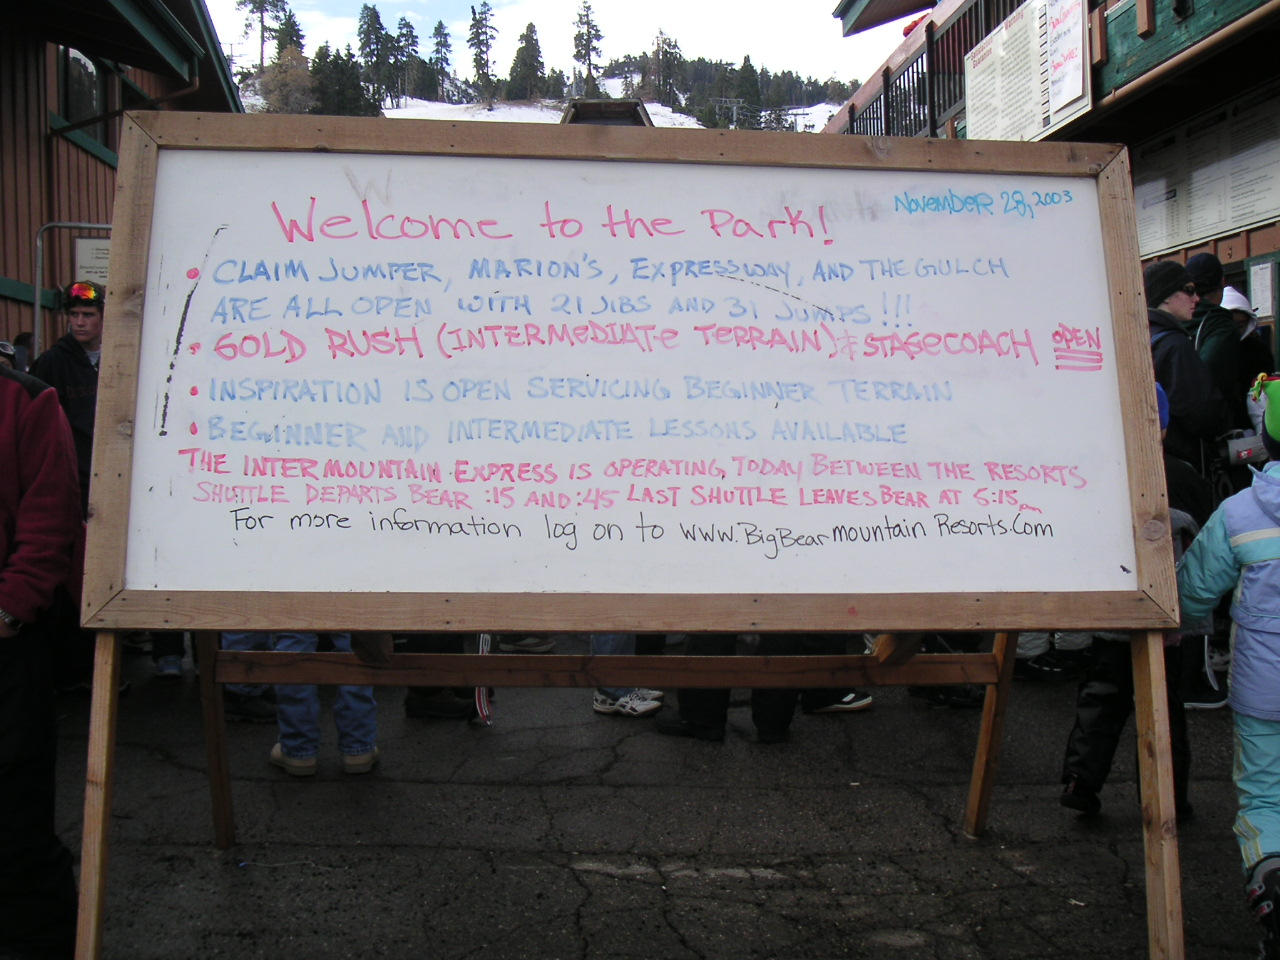 November 28, 2003
Welcome to the Park!
• CLAIM JUMPER, MARION'S, EXPRESSWAY, AND THE GULCH
ARE ALL OPEN WITH 21 JIBS AND 31 JUMPS!!!
• GOLD RUSH (INTERMEDIATE TERRAIN) & STAGECOACH OPEN
• INSPIRATION IS OPEN SERVICING BEGINNER TERRAIN
• BEGINNER AND INTERMEDIATE LESSONS AVAILABLE
THE INTERMOUNTAIN EXPRESS IS OPERATING TODAY BETWEEN THE RESORTS
SHUTTLE DEPARTS BEAR :15 AND :45 LAST SHUTTLE LEAVES BEAR AT 5:15
For more information log on to www.BigBearmountainResorts.Com